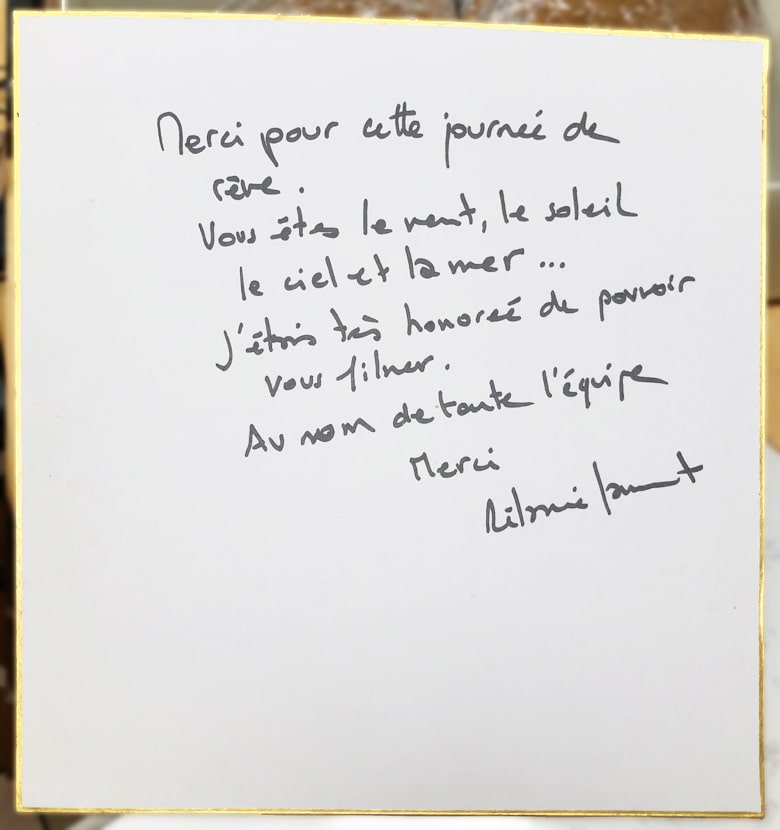 Merci pour cette journée de
rêve.
Vous êtes le vent, le soleil
le ciel et la mer...
J'étais très honorée de pouvoir
vous filmer.
Au nom de toute l'équipe
Merci
Laurent